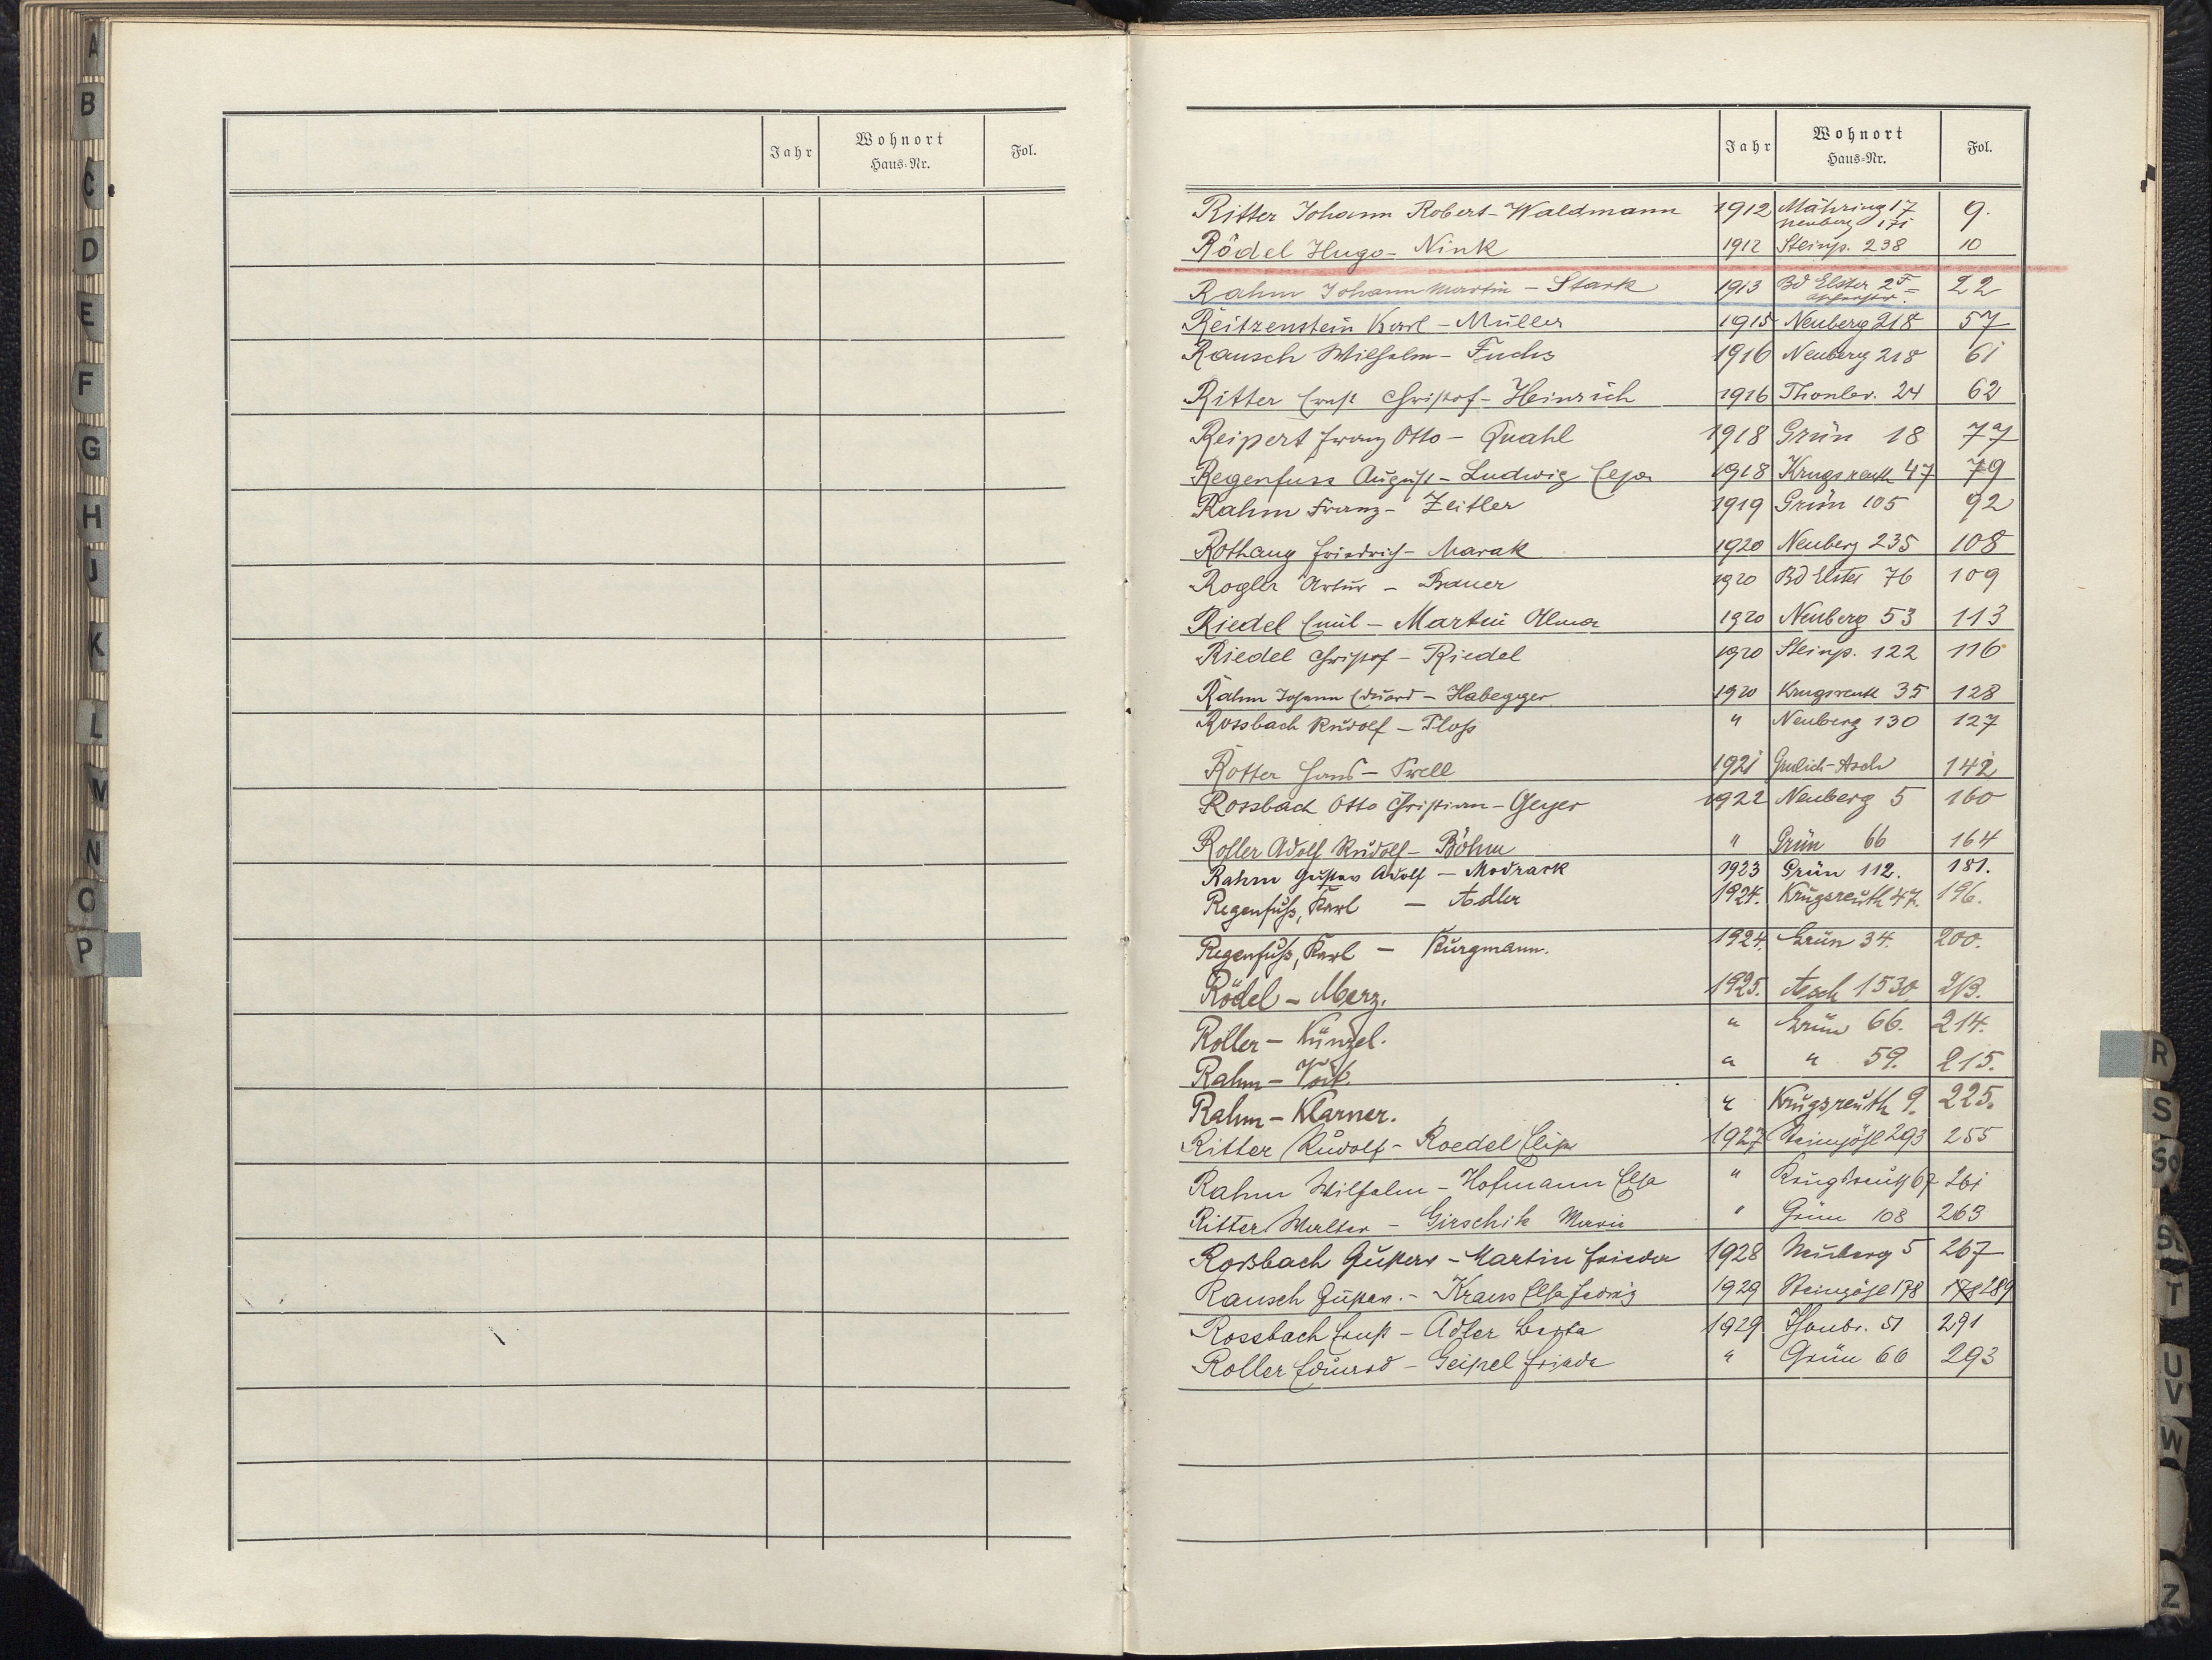 A
B
C
D
E
F
G
H
J
K
L
M
N
O
P
Jahr Wohnort Haus-Nr. Fol.
Jahr Wohnort Haus-Nr. Fol.
Ritter Johann Robert - Waldmann 1912 Mähring 17 9.
Neuberg 171
Rödel Hugo - Nink 1912 Steinp. 238 10
Rahm Johann Martin - Stark 1913 Bd Elster 22
Reitzenstein Karl - Müller 1915 Neuberg 218 57
Rausch Wilhelm - Fuchs 1916 Neuberg 218 61
Ritter Ernst Christof - Heinrich 1916 Thonbr. 24 62
Reipert Franz Otto - Quahl 1918 Grün 18 77
Regenfuss August - Ludwig Elsa 1918 Krugsreuth 47 79
Rahm Franz - Zeitler 1919 Grün 105 92
Rothaug Friedrich - Marak 1920 Neuberg 235 108
Rogler Artur - Bauer 1920 Bd Elster 76 109
Riedel Emil - Martin Alma 1920 Neuberg 53 113
Riedel Christof - Riedel 1920 Steinp. 122 116
Rahm Johann Eduard - Habegger 1920 Krugsreuth 35 128
Rossbach Rudolf - Ploss " Neuberg 130 127
Rotter Hans - 1921 Gmlich-Asch 142
Rossbach Otto Christian - Geyer 1922 Neuberg 5 160
Roller Adolf Rudolf - Böhm " Grün 66 164
Rahm Gustav Adolf - Modrack 1923 Grün 112. 181.
Regenfuß, Karl - Adler 1924. Krugsreuth 47. 196.
Regenfuß, Karl - Kurgmann. 1924. Grün 34. 200.
Rödel - Merz. 1925. Asch 1530 213.
Roller - Künzel. " Grün 66. 214.
Rahm - Voit. " " 59. 215.
Rahm - Klarner. " Krugsreuth 9. 225.
Ritter Rudolf - Roedel Elise 1927 Steinpöhl 293 255
Rahm Wilhelm - Hofmann Elsa " Krugsreuth 67 261
Ritter Walter - Girschik Marie " Grün 108 263
Roßbach Gustav - Martin Frieda 1928 Neuberg 5 267
Rausch Gustav. - Kraus Elsa Hedwig 1929 Steinpöhl 178 178 289
Rossbach Ernst - Adler Berta 1929 Thonbr. 51 291
Roller Eduard - Geipel Frieda " Grün 66 293
R
S
Sch
St
T
U
V
W
Z